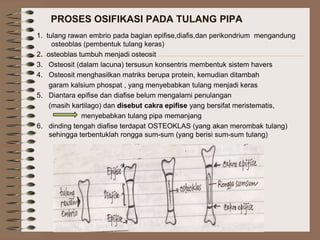 PROSES OSIFIKASI PADA TULANG PIPA
1. tulang rawan embrio pada bagian epifise,diafis,dan perikondrium mengandung
osteoblas (pembentuk tulang keras)
2. osteoblas tumbuh menjadi osteosit
3. Osteosit (dalam lacuna) tersusun konsentris membentuk sistem havers
4. Osteosit menghasilkan matriks berupa protein, kemudian ditambah
garam kalsium phospat , yang menyebabkan tulang menjadi keras
5. Diantara epifise dan diafise belum mengalami penulangan
(masih kartilago) dan disebut cakra epifise yang bersifat meristematis,
menyebabkan tulang pipa memanjang
6. dinding tengah diafise terdapat OSTEOKLAS (yang akan merombak tulang)
sehingga terbentuklah rongga sum-sum (yang berisi sum-sum tulang)
tulang
rawan
embrio
Epifise
Diafise
Epifise
osteoklas
cakra epifise
Rongga sumsum
cakra epifise